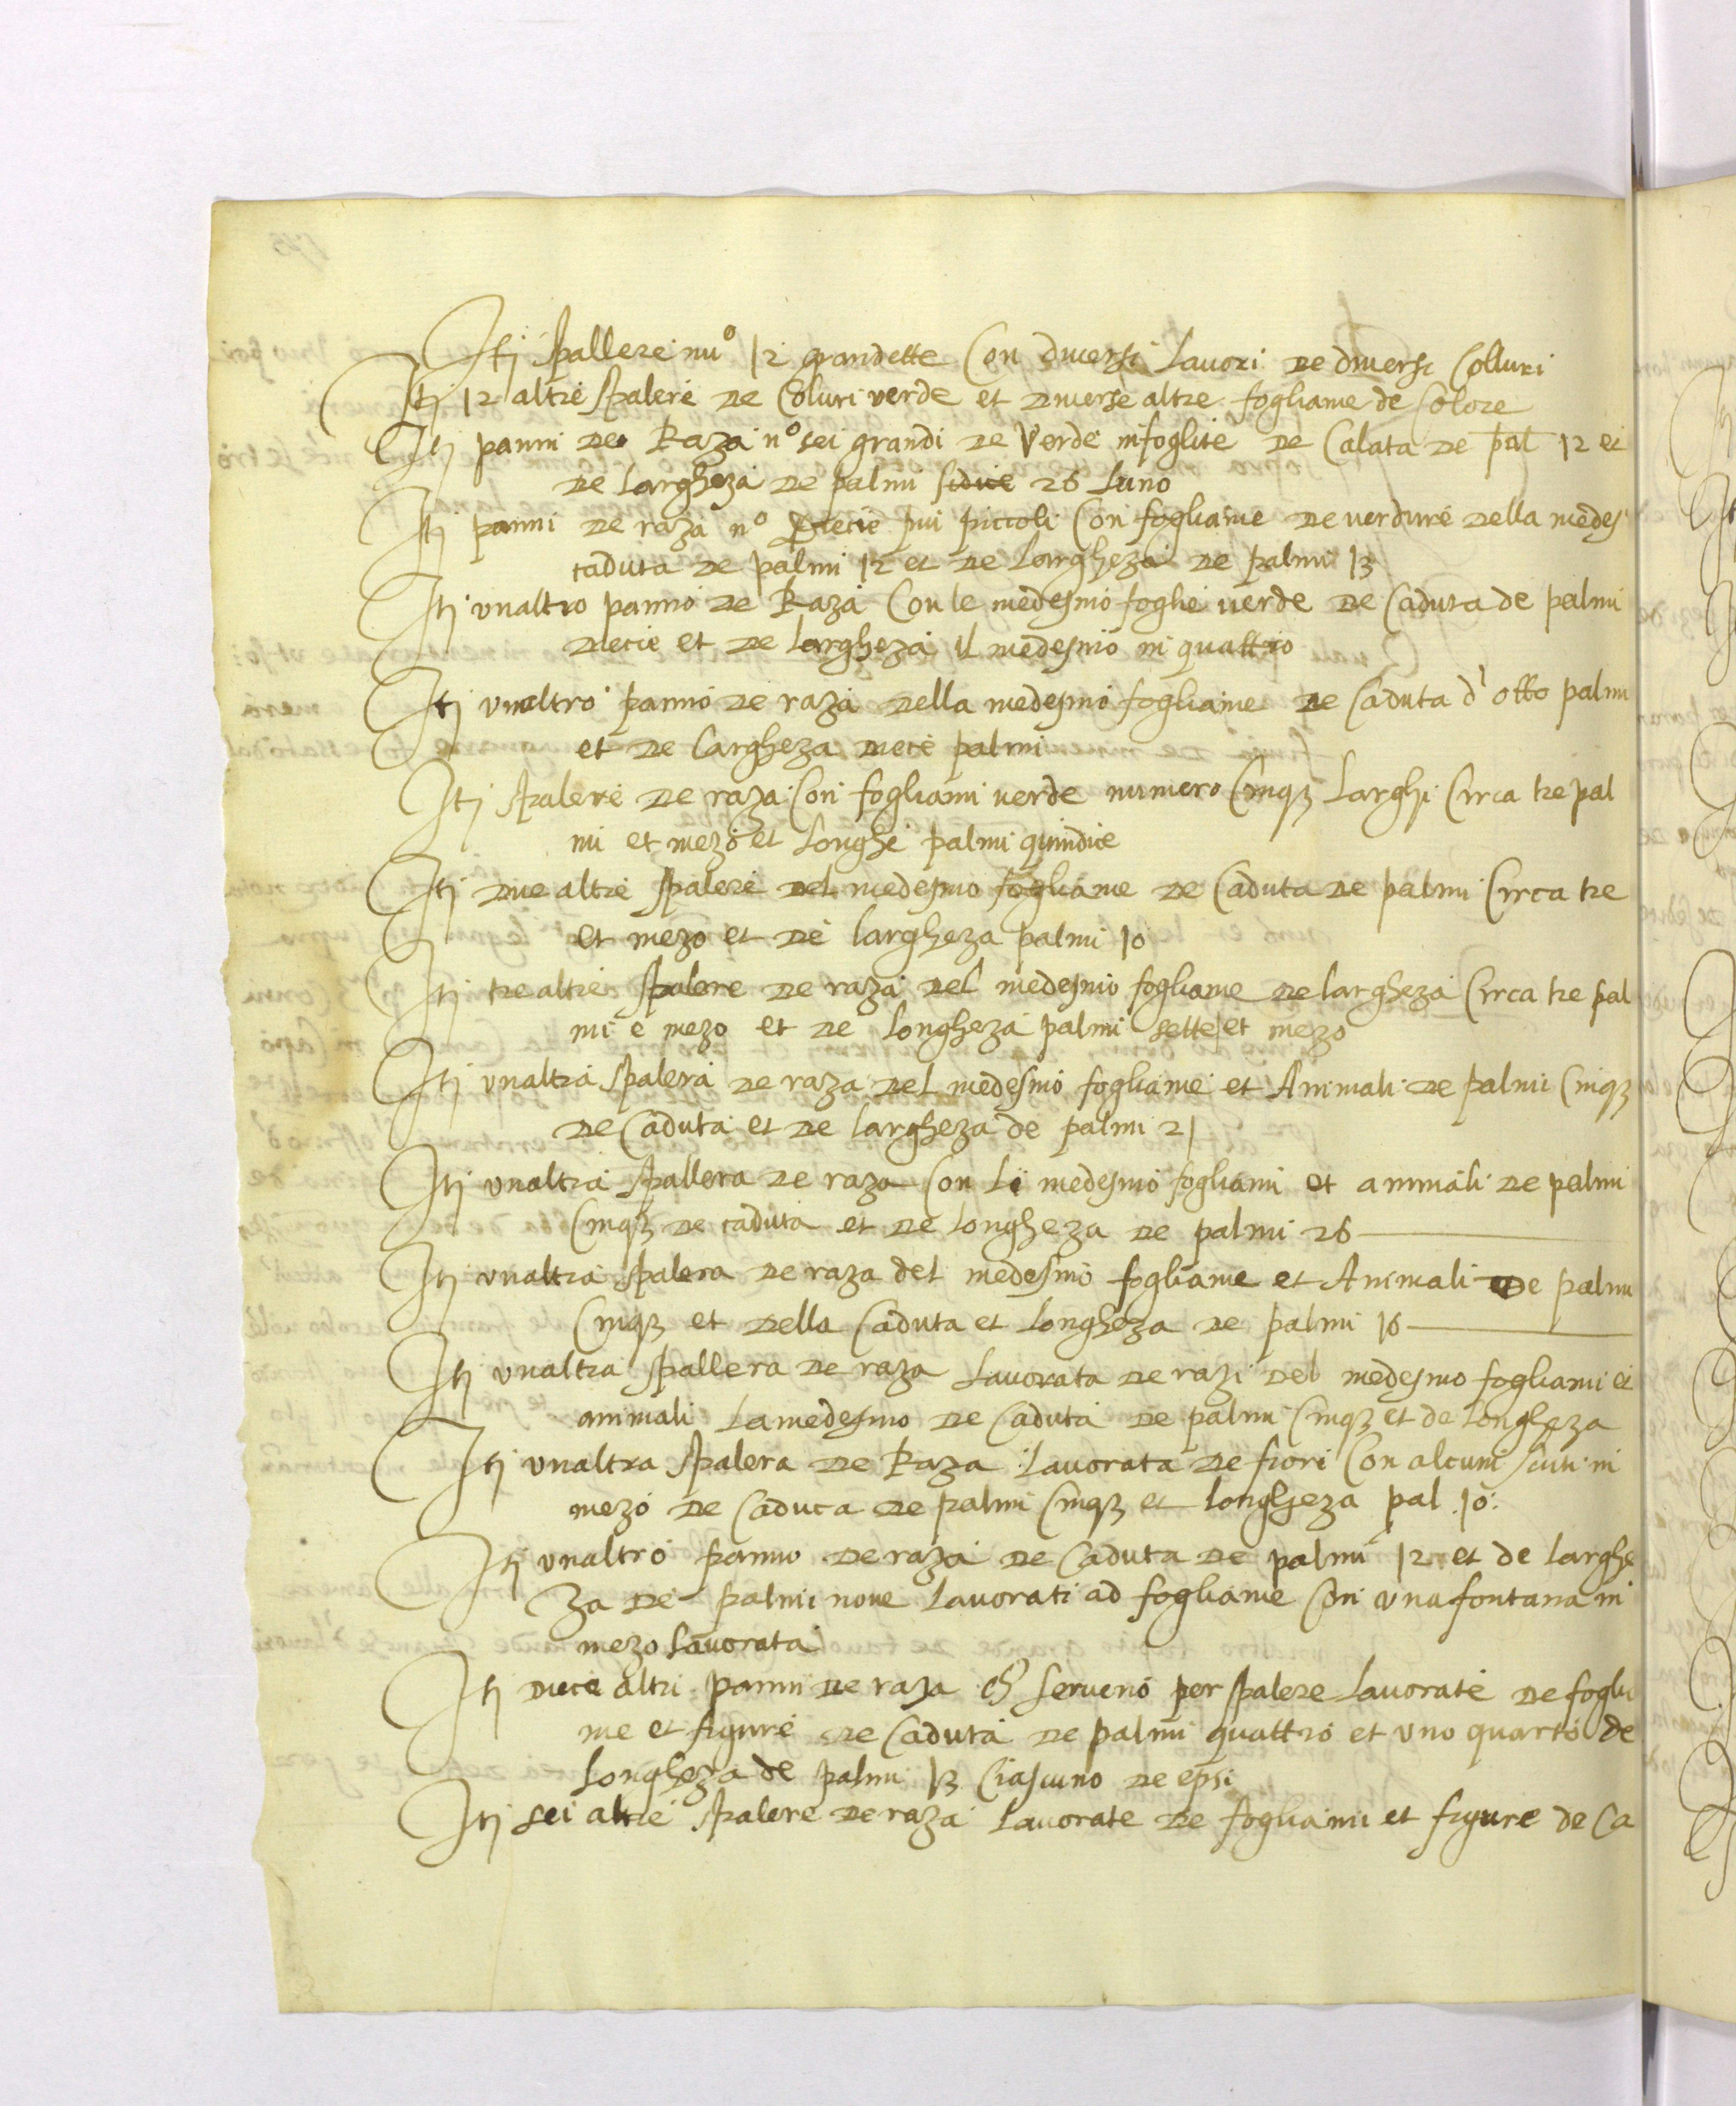 Itj spallere nu° 12 grandette Con diuersi Lauori de diuersi Colluri
Itj 12 altre spalere de Coluri verde et diuerse altre fogliame de Colore
Itj panni de Raza n° sei grandi de Verde infoglite de Calata de pal 12 et
de largheza de palmi sidice 26 luno
Itj panni de raza n° diecie piu piccoli Con fogliame de verdure della medes
caduta de palmi 12 et de largheza de palmi 13
Itj vnaltro panno de Raza Con le medesmo foghe verde de Caduta de palmi
diecie et de largheza il medesmo in quattro
Itj vnaltro panno de raza della medesmo fogliame de Caduta d' otto palmi
et de largheza diece palmi
Itj spalere de raza Con fogliami verde numero Cinqz Larghi Circa tre pal
mi et mezo et Longhe palmi quindice
Itj due altre spalere del medesmo fogliame de Caduta de palmi Circa tre
et mezo et de largheza palmi 10
Itj tre altre spalere de raza del medesmo fogliame de largheza Circa tre pal
mi e mezo et de longheza palmi sette et mezo
Itj vnaltra spalera de raza del medesmo fogliame et Animali de palmi Cinqz
de Caduta et de largheza de palmi 21
Itj vnaltra spallera de raza Con Li medesmo fogliami et animali de palmi
Cinqz de caduta et de longheza de palmi 26
Itj vnaltra spalera de raza del medesmo fogliame et Animali de palmi
Cinqz et della Caduta et Longheza de palmi 16
Itj vnaltra spallera de raza Lauorata de razi del medesmo fogliami et
animali la medesmo de Caduta de palmi Cinqz et de longheza
Itj vnaltra spalera de Raza Lauorata de fiori Con alcuni scuti in
mezo de Caduta de palmi Cinqz et longheza pal 10
Itj vnaltro panno de raza de Caduta de palmi 12 et de larghe
za de palmi noue Lauorati ad fogliame Con vna fontana in
mezo lauorata
Itj diece altri panni de raza ch serueno per spalere Lauorate de foglia
me et figure de Caduta de palmi quattro et vno quarto de
Longheza de palmi 13 Ciascuno de epsi
Itj sei altre spalere de raza Lauorate de fogliami et figure de Ca